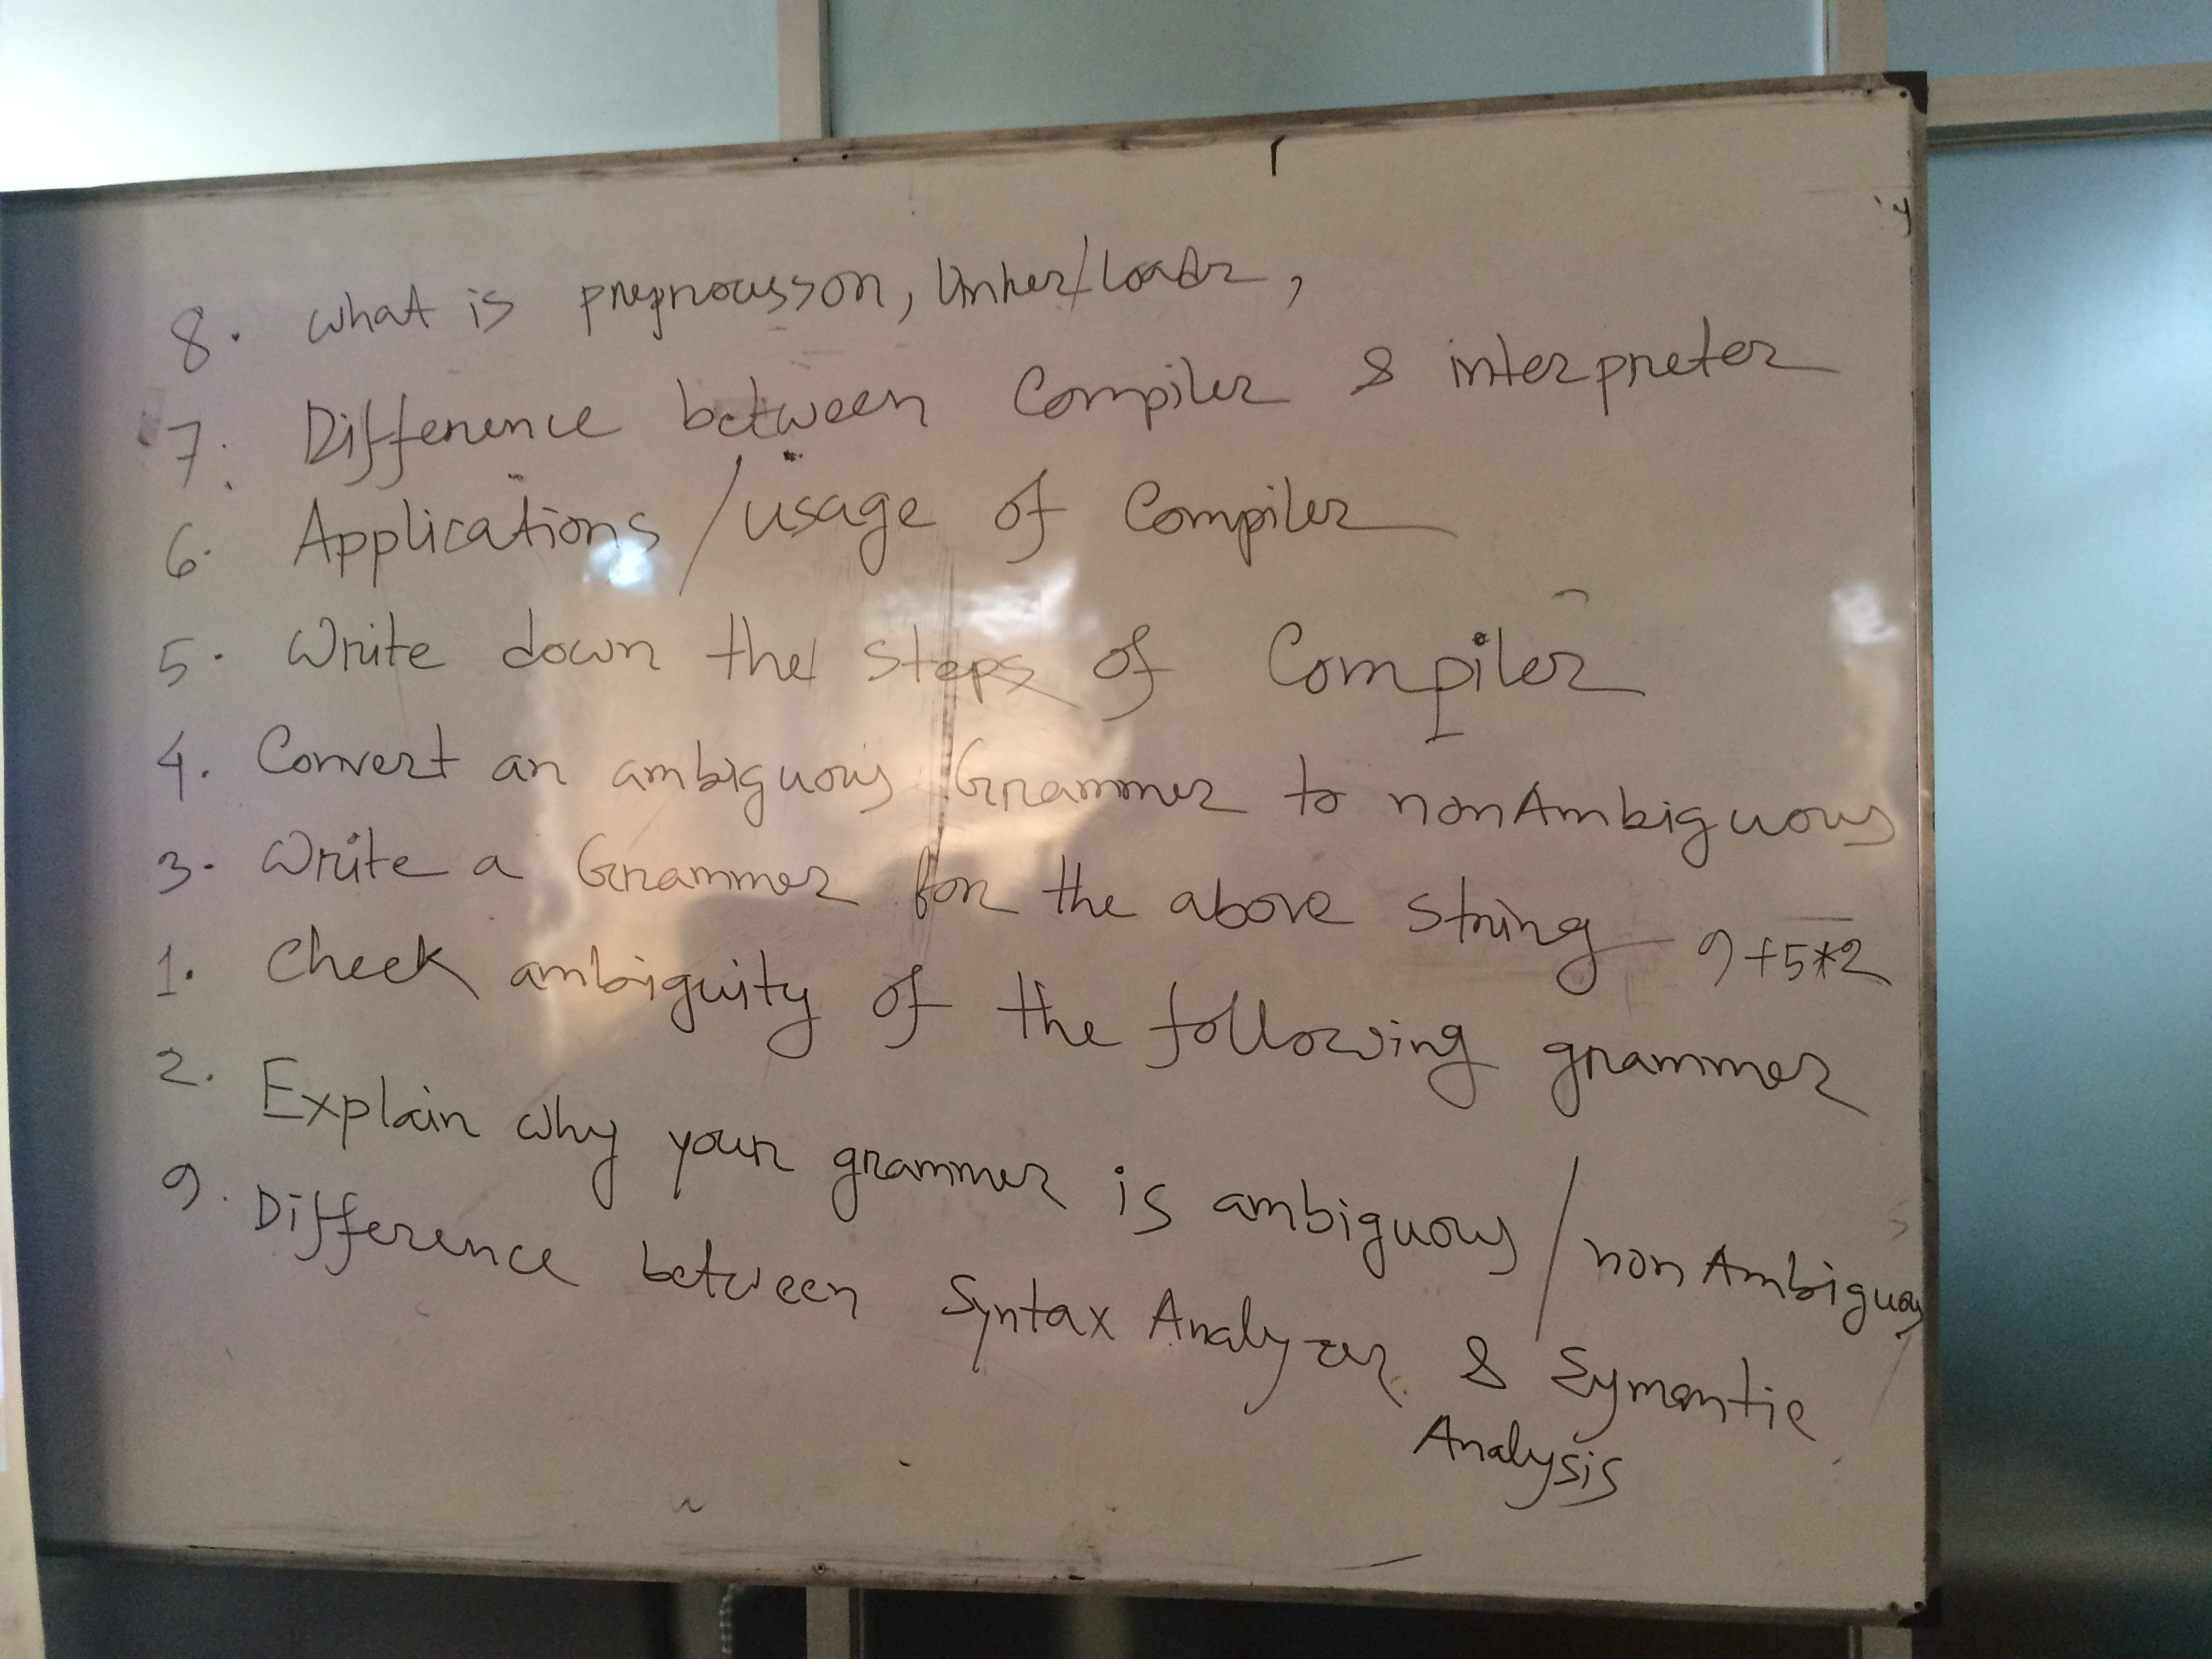 8. what is preprocesson, Linker/Loader,
7. Difference between Compiler & interpreter
6. Applications / usage of Compiler
5. Write down the steps of Compiler
4. Convert an ambiguous Grammer to nonAmbiguous
3. Write a Grammer for the above string 9+5*2
1. Check ambiguity of the following grammer
2. Explain why your grammer is ambiguous / non Ambiguous
9. Difference between Syntax Analyzer & Symentic
Analysis